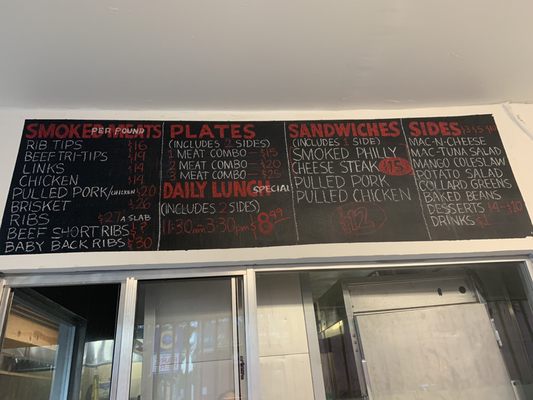 SMOKED MEATS PER POUND
RIB TIPS $16
BEEF TRI-TIPS $19
LINKS $19
CHICKEN $18
PULLED PORK/CHICKEN $20
BRISKET $26
RIBS $27 A SLAB
BEEF SHORT RIBS
BABY BACK RIBS $30
PLATES
(INCLUDES 2 SIDES)
1 MEAT COMBO $15
2 MEAT COMBO $20
3 MEAT COMBO $25
DAILY LUNCH SPECIAL
(INCLUDES 2 SIDES)
11:30AM-3:30PM $8.99
SANDWICHES
(INCLUDES 1 SIDE)
SMOKED PHILLY
CHEESE STEAK $15
PULLED PORK
PULLED CHICKEN
$12
SIDES
MAC-N-CHEESE
MAC-TUNA SALAD
MANGO COLESLAW
POTATO SALAD
COLLARD GREENS
BAKED BEANS
DESSERTS
DRINKS $2